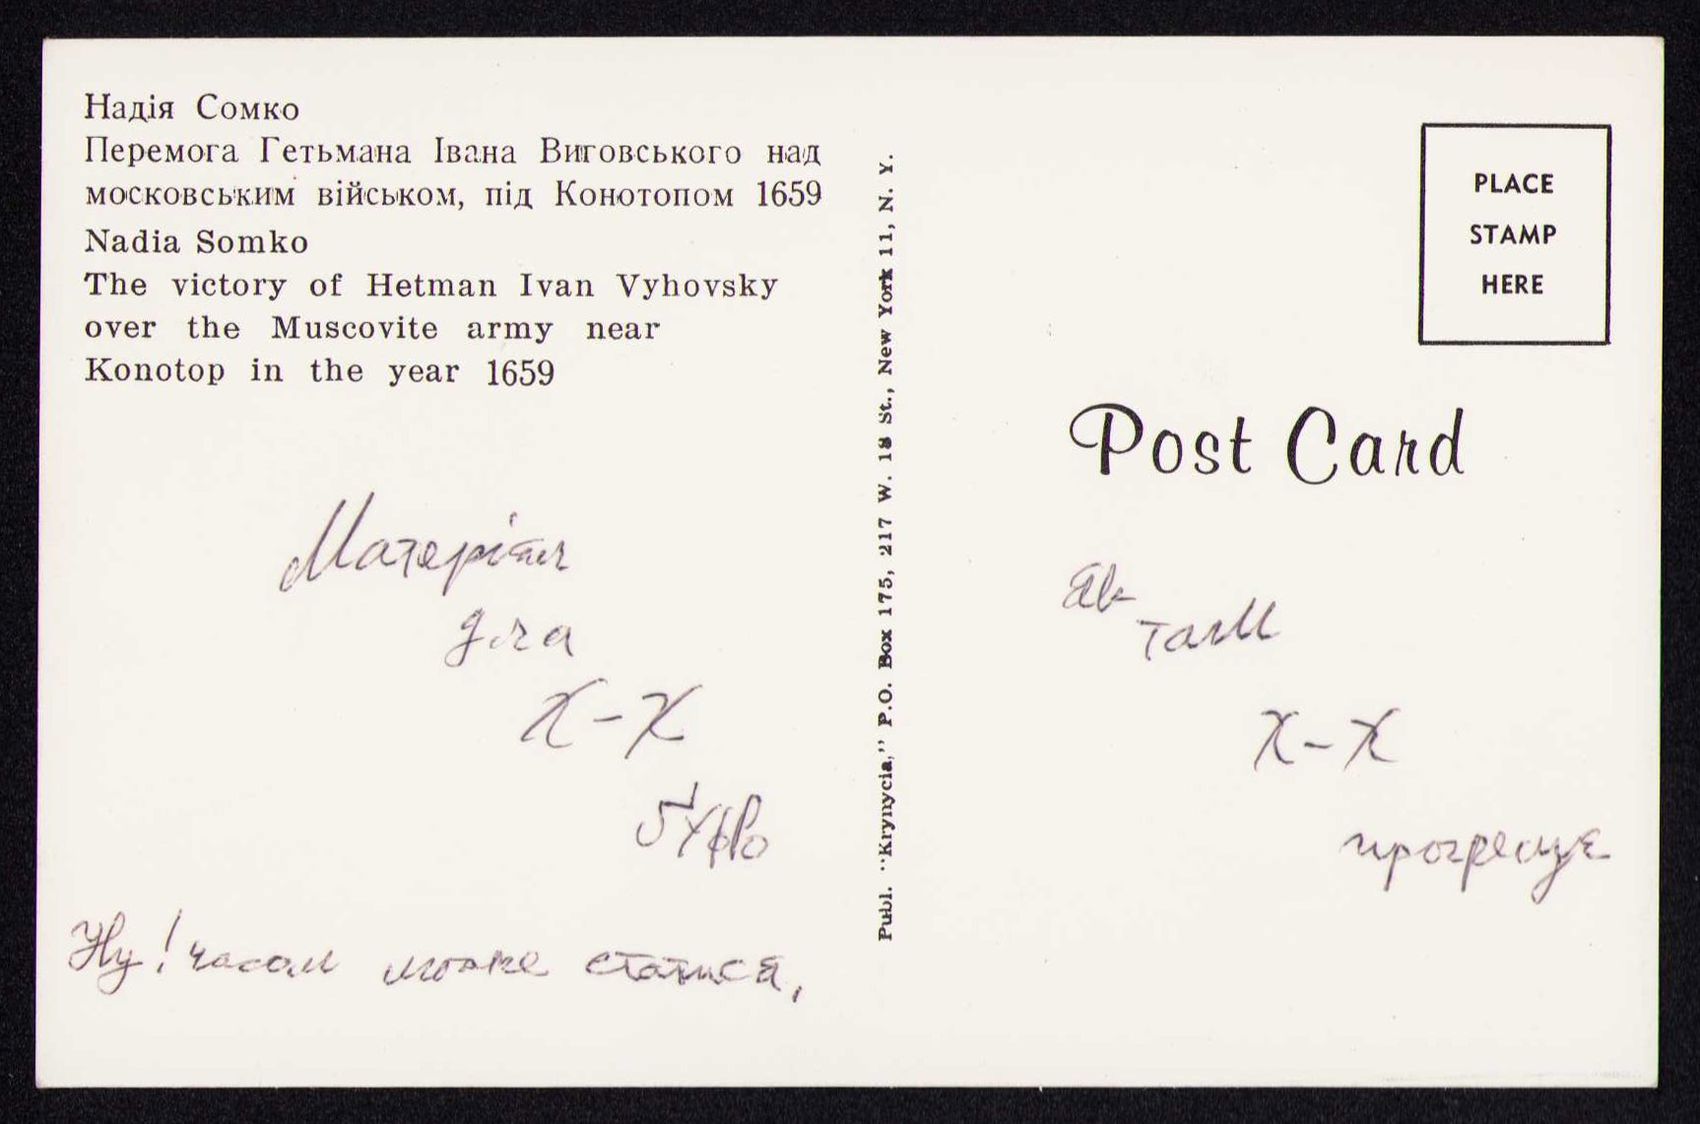 Надія Сомко
Перемога Гетьмана Івана Виговського над
московським військом, під Конотопом 1659
Nadia Somko
The victory of Hetman Ivan Vyhovsky
over the Muscovite army near
Konotop in the year 1659
Матеріял
для
Х-Х
Ну! часом може статися,
Publ. "Krynycia," P.O. Box 175, 217 W. 18 St., New York 11, N. Y.
PLACE
STAMP
HERE
Post Card
там
Х-Х